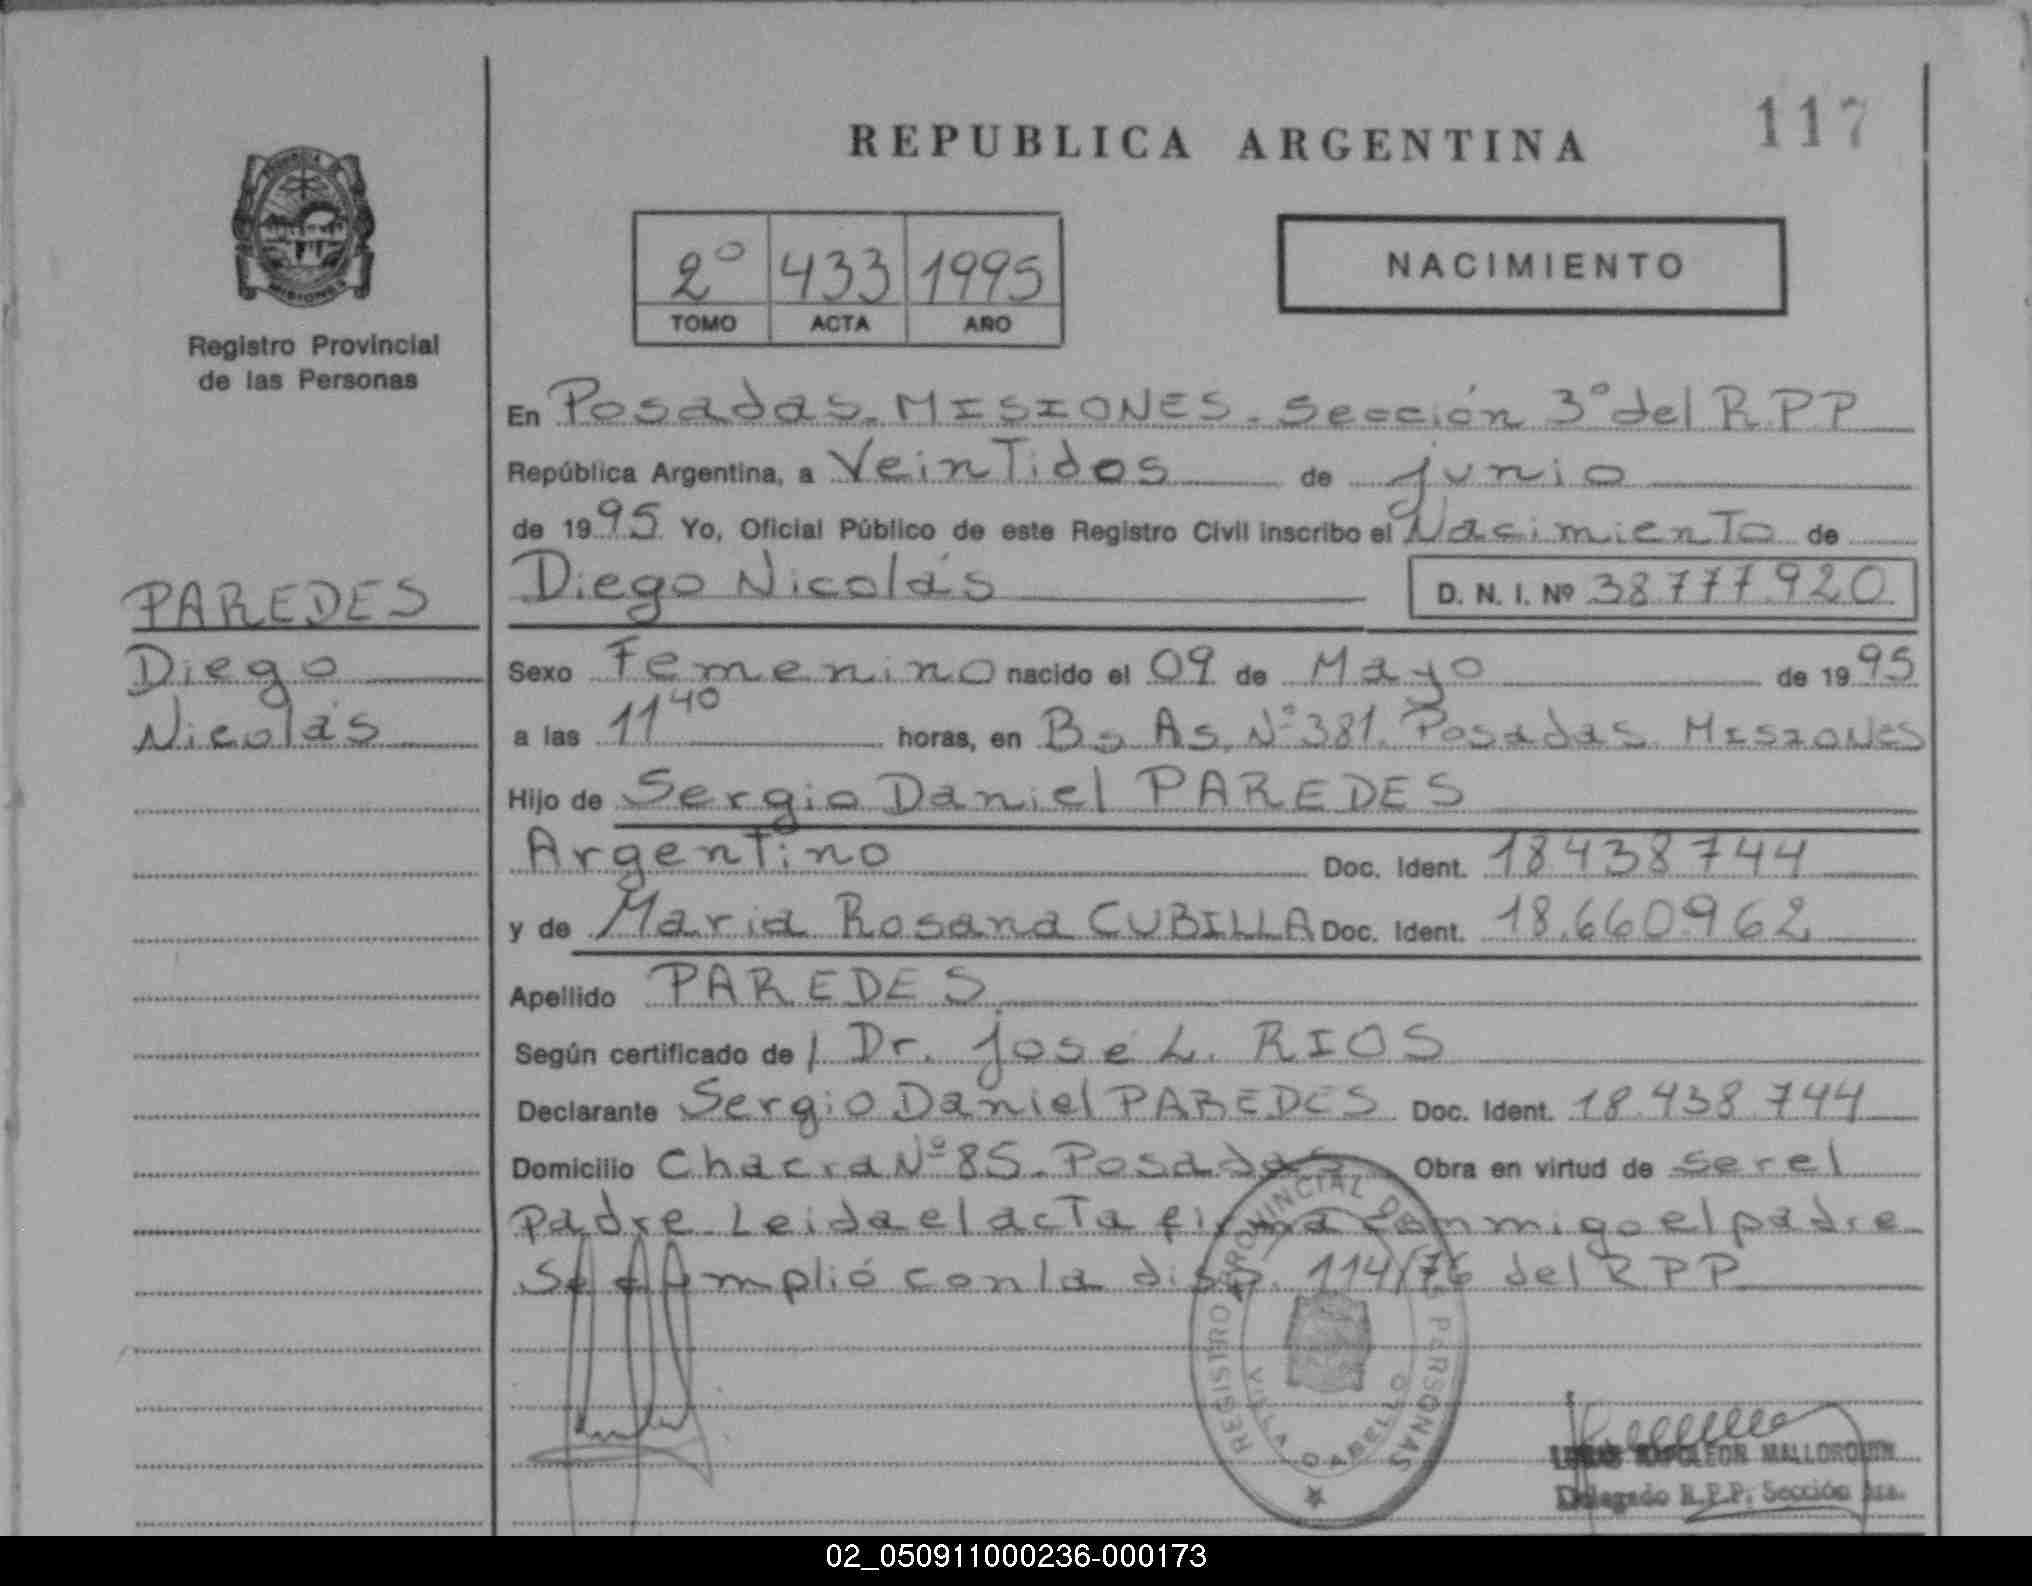 REPUBLICA ARGENTINA
117
MISIONES
Registro Provincial
de las Personas
2º 433 1995
TOMO ACTA AÑO
NACIMIENTO
En Posadas. MISIONES. Sección 3º del R.P.P
República Argentina, a Veintidos de junio
de 1995 Yo, Oficial Público de este Registro Civil inscribo el Nacimiento de
PAREDES
Diego Nicolás
Diego Nicolás D. N. I. Nº 38.777.920
Sexo Femenino nacido el 09 de Mayo de 1995
a las 11 40 horas, en Bs As. Nº 381. Posadas. MISIONES
Hijo de Sergio Daniel PAREDES
Argentino Doc. Ident. 18.438.744
y de Maria Rosana CUBILLA Doc. Ident. 18.660.962
Apellido PAREDES
Según certificado de / Dr. José L. RIOS
Declarante Sergio Daniel PAREDES Doc. Ident. 18.438.744
Domicilio Chacra Nº 85. Posadas Obra en virtud de ser el
Padre. Leida el acta firma conmigo el padre
Se cumplió con la disp. 114/76 del R.P.P
REGISTRO PROVINCIAL DE PERSONAS
NAPOLEON MALLORQUIN
Delegado R.P.P. Sección 3ra.
02_050911000236-000173